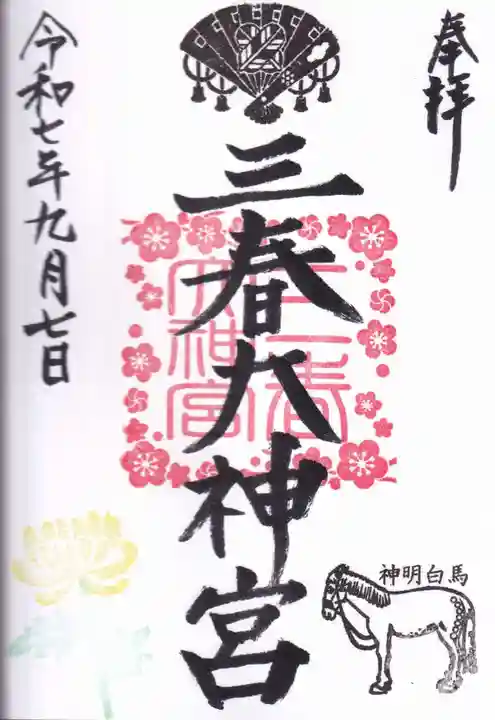 奉拝
三春大神宮
三春
大神宮
令和七年九月七日
神明白馬